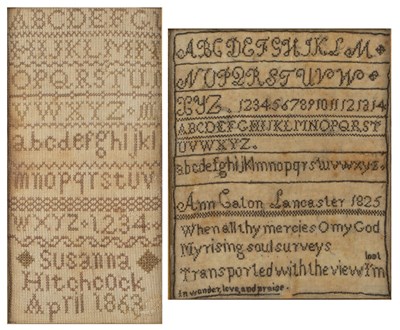 ABCDEFG
HIJKLMN
OPQRSTU
VWXYZ
abcdefghijkl
mnopqrstuv
wxyz 1234
Susanna
Hitchcock
April 1863
ABCDEFGHIKLM
NOPQRSTUVW
XYZ. 1234567891011121314
ABCDEFGHIJKLMNOPQRST
UVWXYZ.
abcdefghijklmnopqrsstuvwxyz.
Ann Caton Lancaster 1825
When all thy mercies O my God
My rising soul surveys
lost
Transported with the view I'm
In wonder, love, and praise.